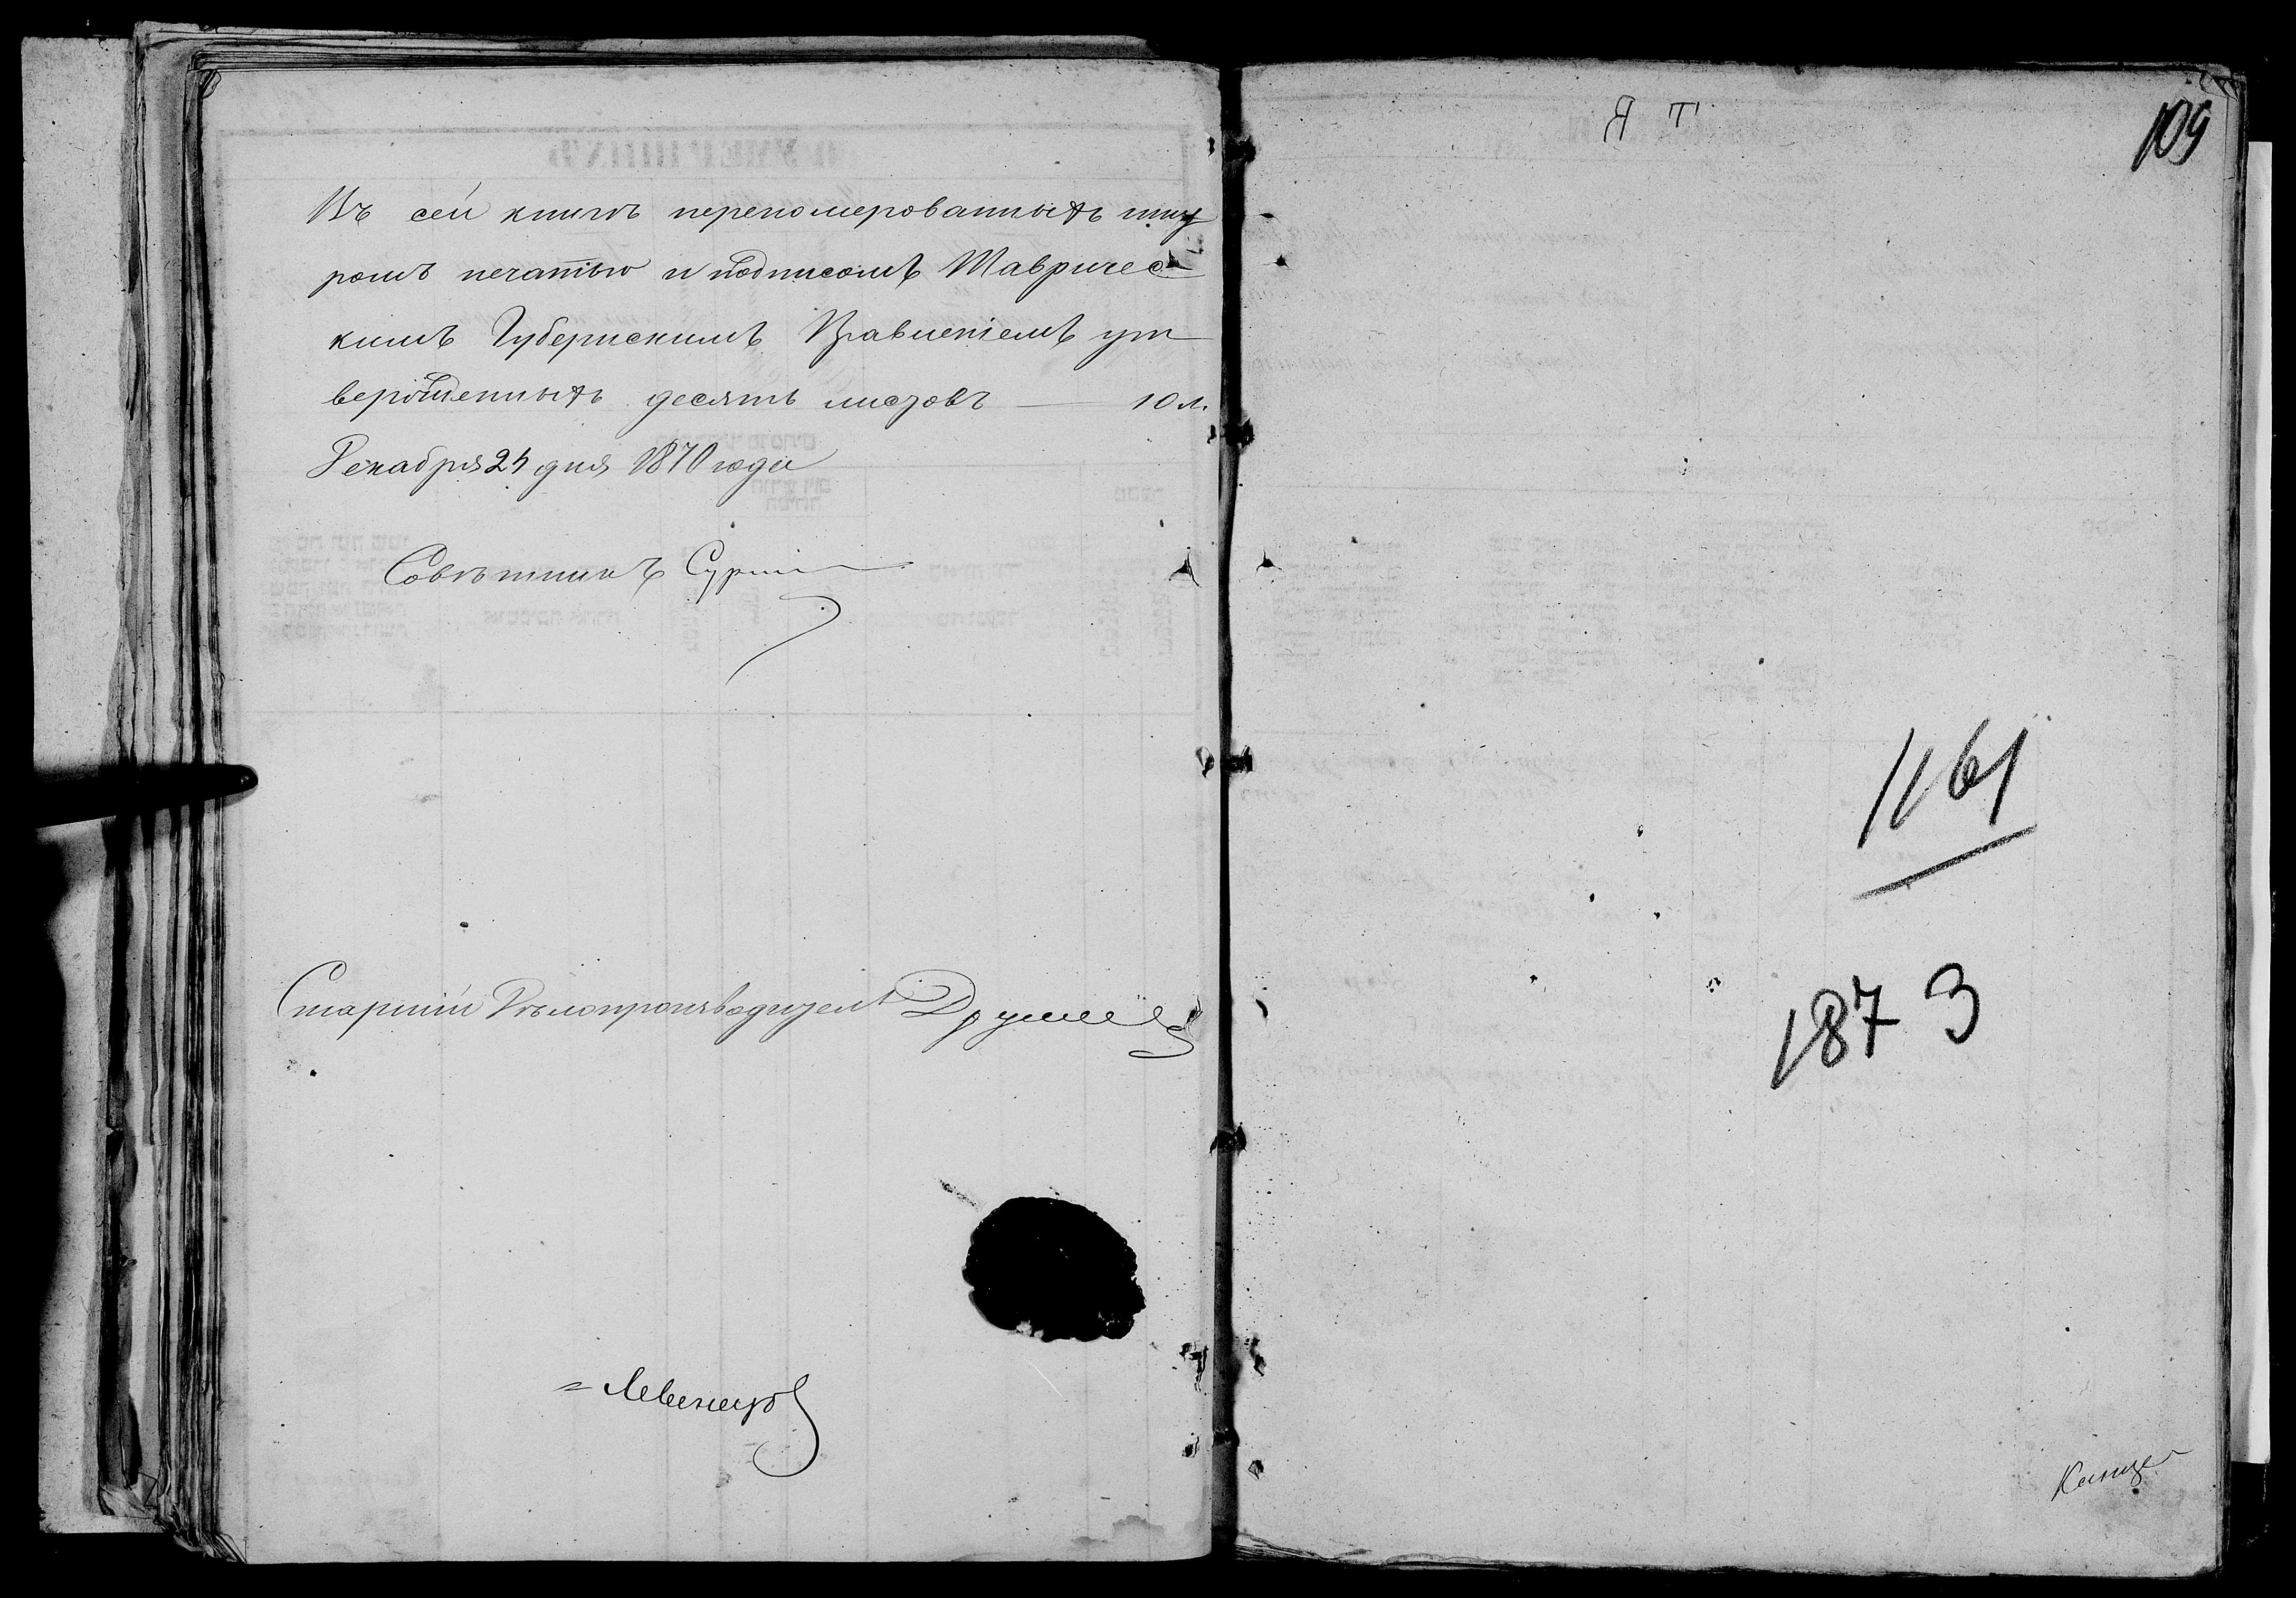 Въ сей книгѣ перепомерованныхъ шну
ромъ печатью и подписомъ Тавричес
кимъ Губернскимъ Правленіемъ ут
вержденныхъ десять листовъ — 10 л.
Декабря 24 дня 1870 года
Совѣтникъ
Старшій Дѣлопроизводитель
Я Т
109
1161
1873